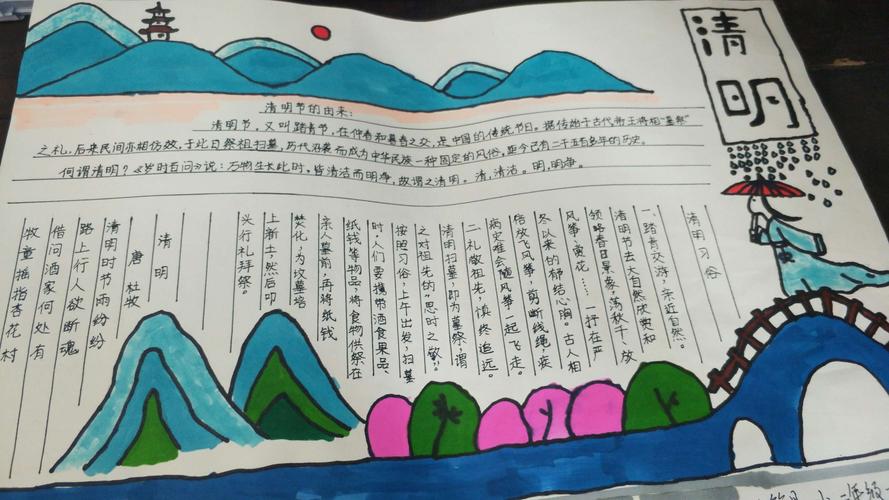 清明
清明节的由来：
清明节，又叫踏青节，在仲春和暮春之交，是中国的传统节日。据传始于古代帝王将相“墓祭”
之礼，后来民间亦相仿效，于此日祭祖扫墓，历代沿袭而成为中华民族一种固定的风俗，距今已有二千五百多年的历史。
何谓清明？《岁时百问》说：万物生长此时，皆清洁而明净，故谓之清明。清，清洁。明，明净。
清明习俗
一、踏青交游，亲近自然。
清明节去大自然欣赏和
领略春日景象，荡秋千、放
风筝，赏花……一抒在严
冬以来的郁结心胸。古人相
信放飞风筝，剪断线绳，疾
病灾难会随风筝一起飞走。
二、礼敬祖先，慎终追远。
清明扫墓，即为墓祭，谓
之对祖先的“思时之敬”。
按照习俗，上午出发，扫墓
时，人们要携带酒食果品、
纸钱等物品，将食物供祭在
亲人墓前，再将纸钱
焚化，为坟墓培
上新土，然后叩
头行礼拜祭。
清明
唐 杜牧
清明时节雨纷纷
路上行人欲断魂
借问酒家何处有
牧童摇指杏花村